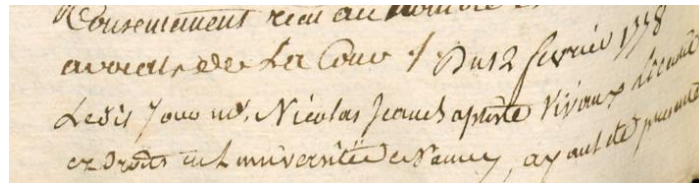 Consentement reçu au nombre
avocats de La Cour / Du 12 fevrier 1778
Ledit Jour me. Nicolas Jean baptiste Vivaux Licentié
ez Droits en L'université de Nancy, ayant été presenté